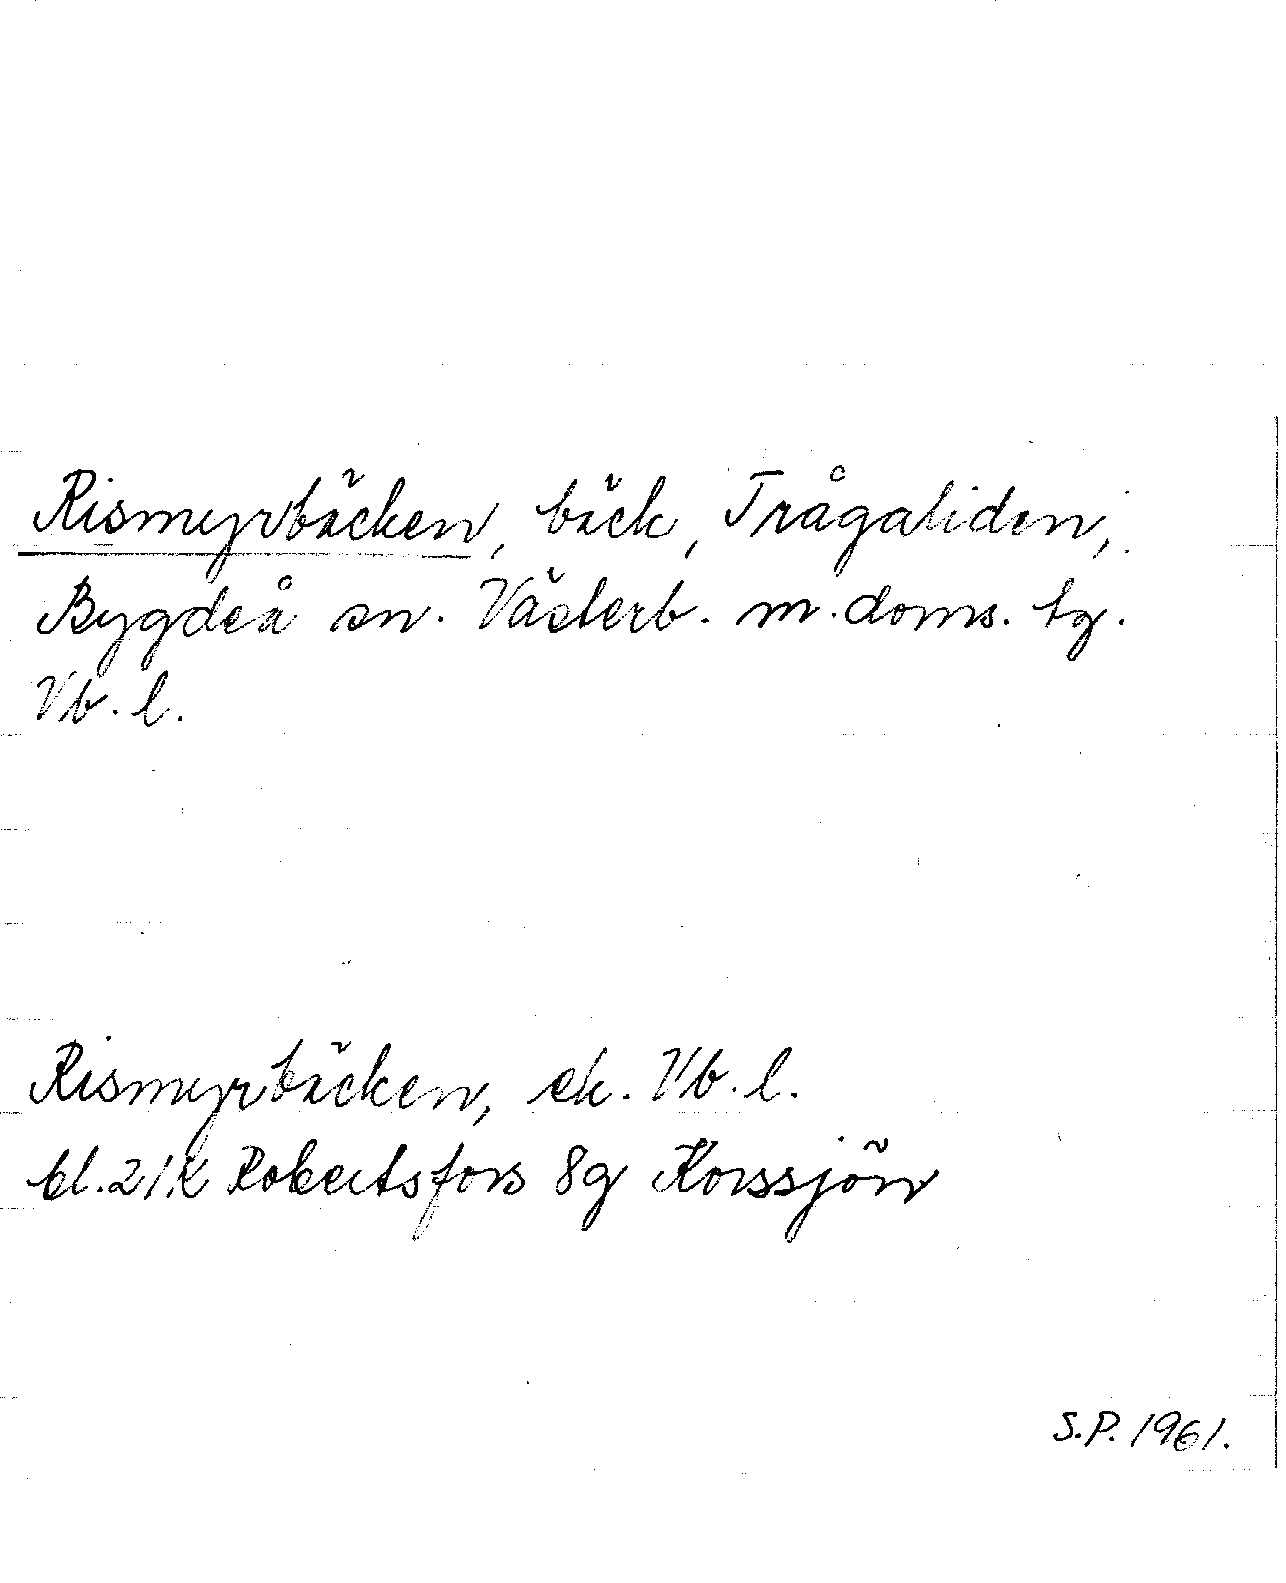 Rismyrbäcken, bäck, Trågaliden,
Bygdeå sn. Västerb. m. doms. tg.
Vb. l.
Rismyrbäcken, ek. Vb. l.
bl. 21K Robertsfors 8g Korssjön
S.P. 1961.